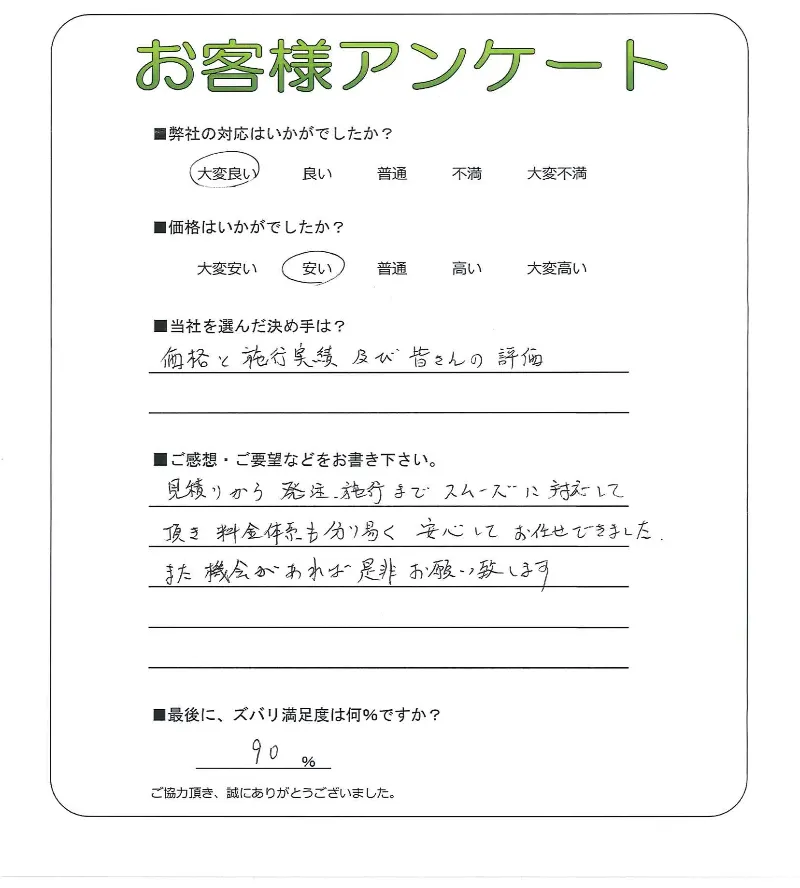 お客様アンケート
■弊社の対応はいかがでしたか？
大変良い 良い 普通 不満 大変不満
■価格はいかがでしたか？
大変安い 安い 普通 高い 大変高い
■当社を選んだ決め手は？
価格と施行実績及び皆さんの評価
■ご感想・ご要望などをお書き下さい。
見積りから発注、施行までスムーズに対応して
頂き料金体系も分り易く安心してお任せできました.
また機会があれば是非お願い致します
■最後に、ズバリ満足度は何％ですか？
90 %
ご協力頂き、誠にありがとうございました。